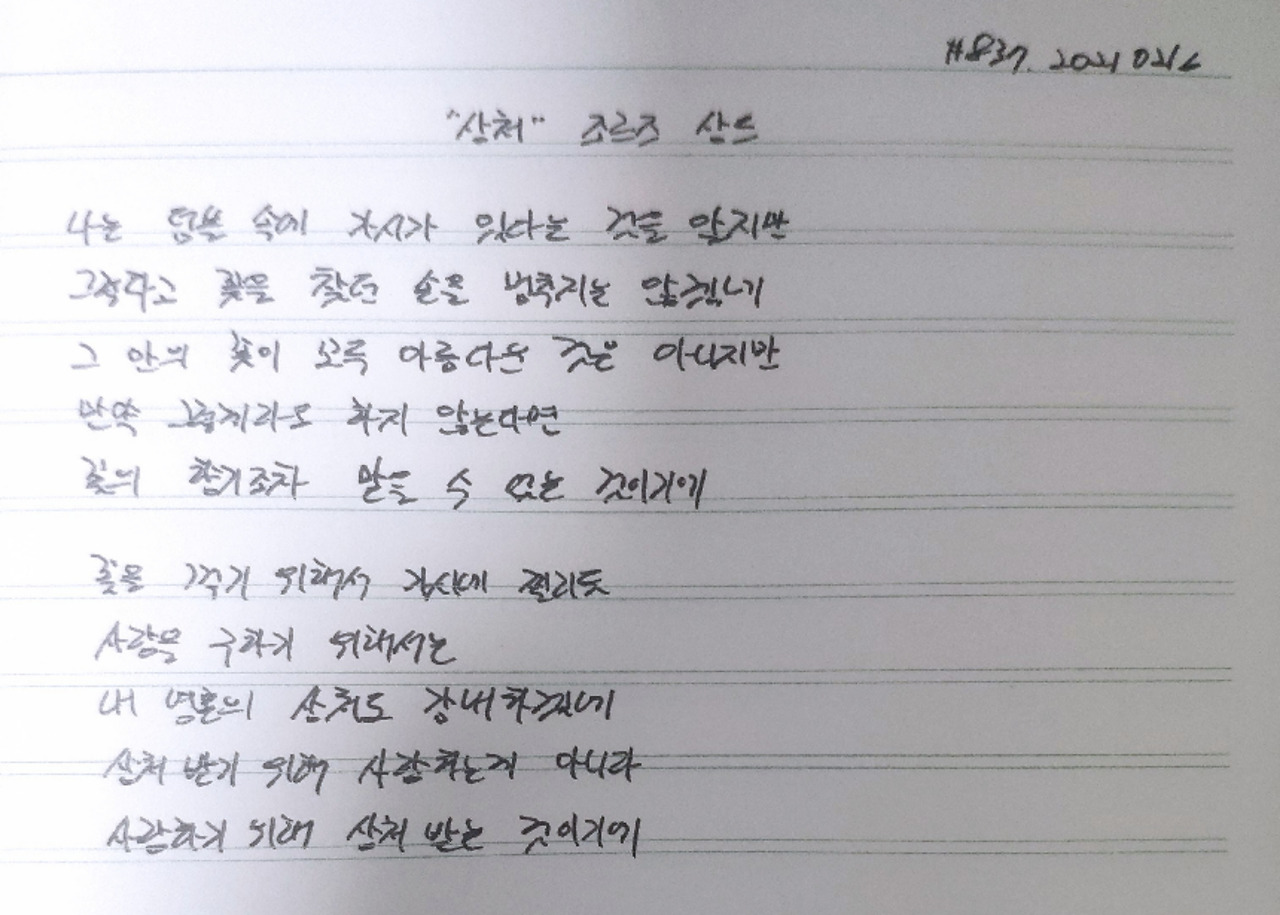 #837. 20210216
"상처" 조르즈 상드
나는 덤불 속에 가시가 있다는 것을 알지만
그렇다고 꽃을 찾던 손을 멈추지는 않겠네
그 안의 꽃이 모두 아름다운 것은 아니지만
만약 그렇게라도 하지 않는다면
꽃의 향기조차 맡을 수 없는 것이기에
꽃을 꺾기 위해서 가시에 찔리듯
사랑을 구하기 위해서는
내 영혼의 상처도 감내하겠네
상처 받기 위해 사랑하는게 아니라
사랑하기 위해 상처 받는 것이기에